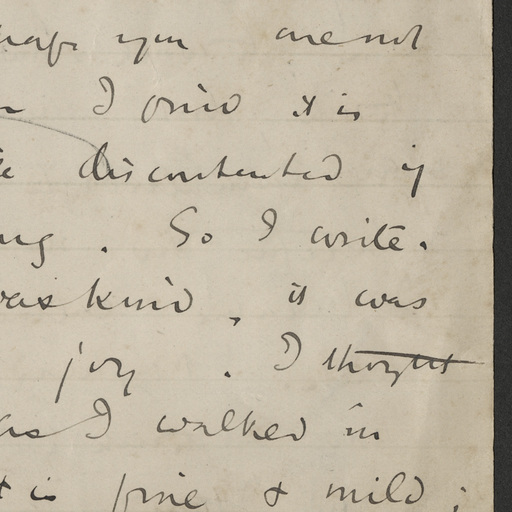 you are not
I find it is
discontented if
. So I write.
was kind, it was
joy. I thought
as I walked in
it is fine & mild;